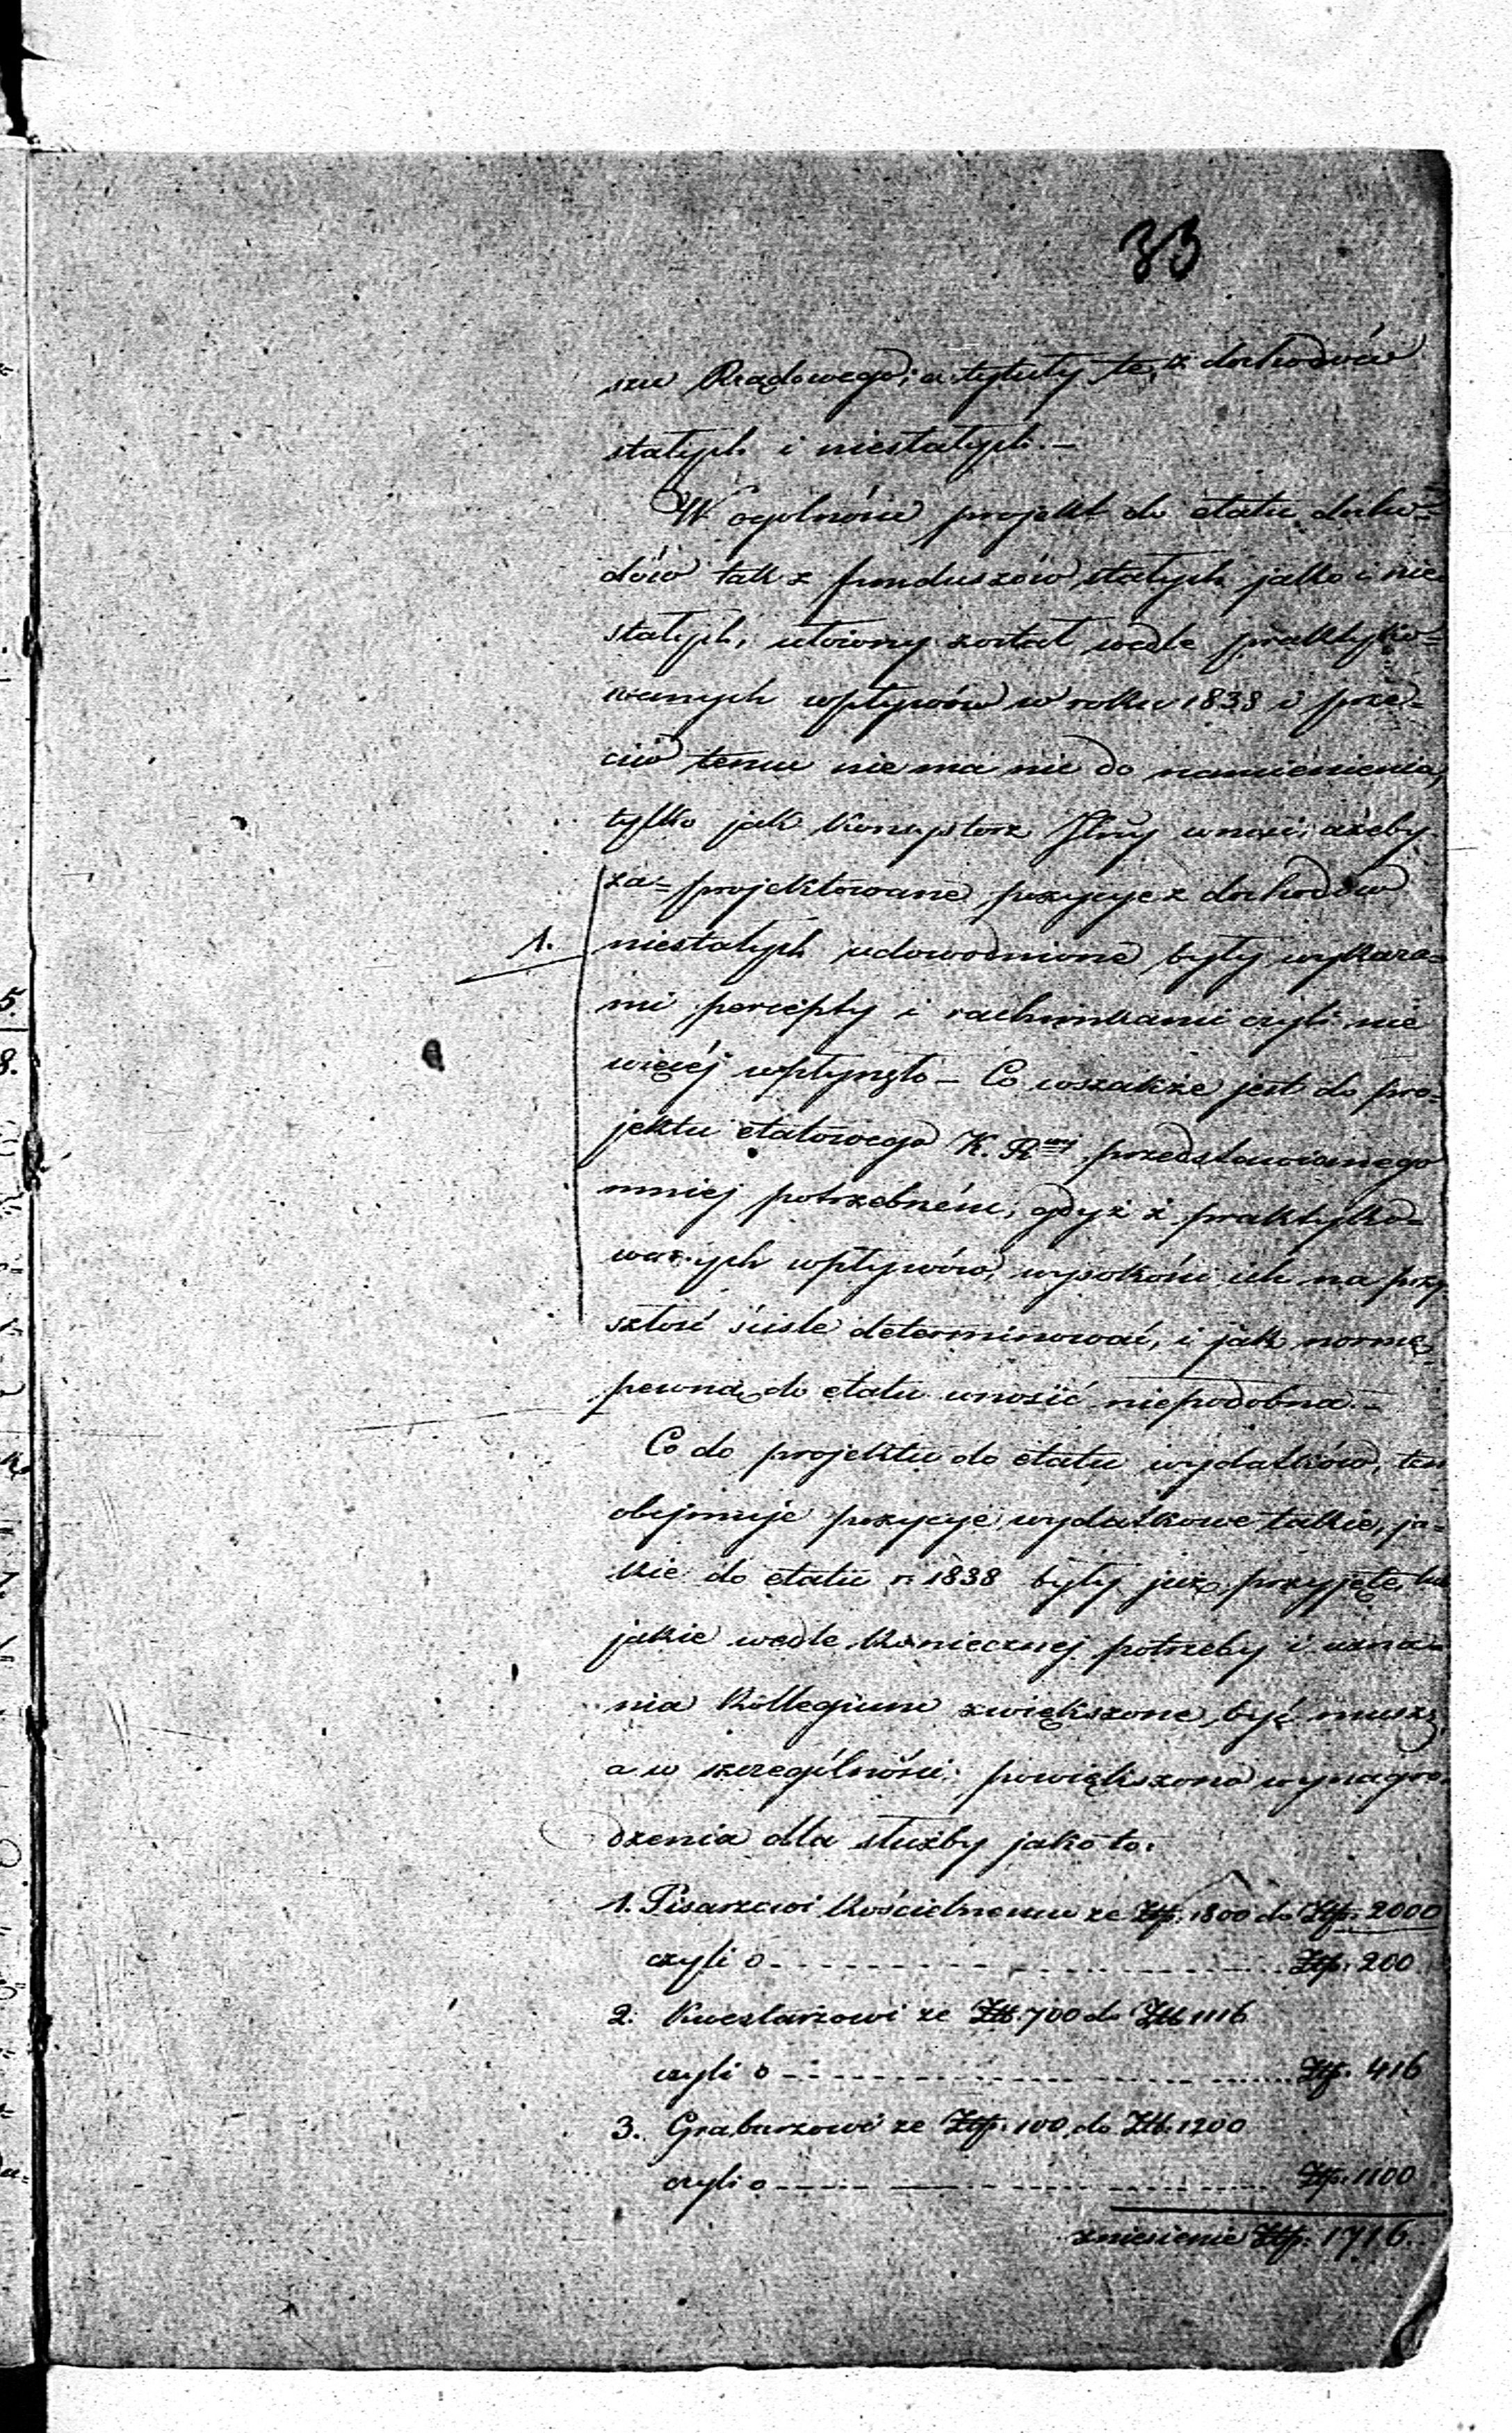 33
szu Rządowego; a tytuły te, z dochodów
stałych i niestałych. –
W ogólności projekt do etatu docho=
dów tak z funduszów stałych jako i nie
stałych, ułożony został wedle praktyko=
wanych wpływów w roku 1838 i prze=
ciw temu nie ma nic do namienienia,
tylko jak wnosi, ażeby
za=projektowane pozycye z dochodów
1. niestałych udowodnione były wykaza=
mi percepty i rachunkami czyli nie
więcéj wpłynęło – Co wszakże jest do pro=
jektu etatowego K. R. przedstawianego
mniej potrzebném, gdyż z praktyko=
wanych wpływów, wysokości ich na przy
szłość ściśle determinować, i jak normę
pewną do etatu wnosić niepodobna. –
Co do projektu do etatu wydatków, ten
obejmuje pozycye wydatkowe takie, ja=
kie do etatu r. 1838 były już przyjęte,
jakie wedle koniecznej potrzeby i uzna=
nia Kollegium zwiększone być muszą,
a w szczególności: powiększono wynagro=
dzenia dla służby jako to:
1. Pisarzowi Kościelnemu ze Złp. 1800 do Złp. 2000
czyli o - - - - - - - - - - Złp. 200
2. Kwestarzowi ze Złp. 700 do Złp. 1116
czyli o - - - - - - - - - - Złp. 416
3. Grabarzowi ze Złp. 100 do Złp. 1200
czyli o - - - - - - - - - - Złp. 1100
zniesienie Złp. 1716.